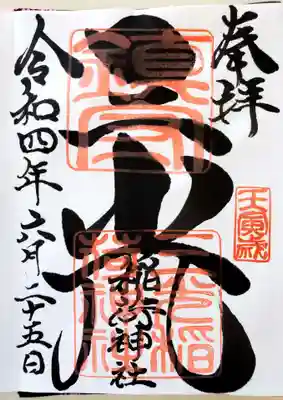 奉拝
壬寅歳
三光
稲荷神社
令和四年六月二十五日